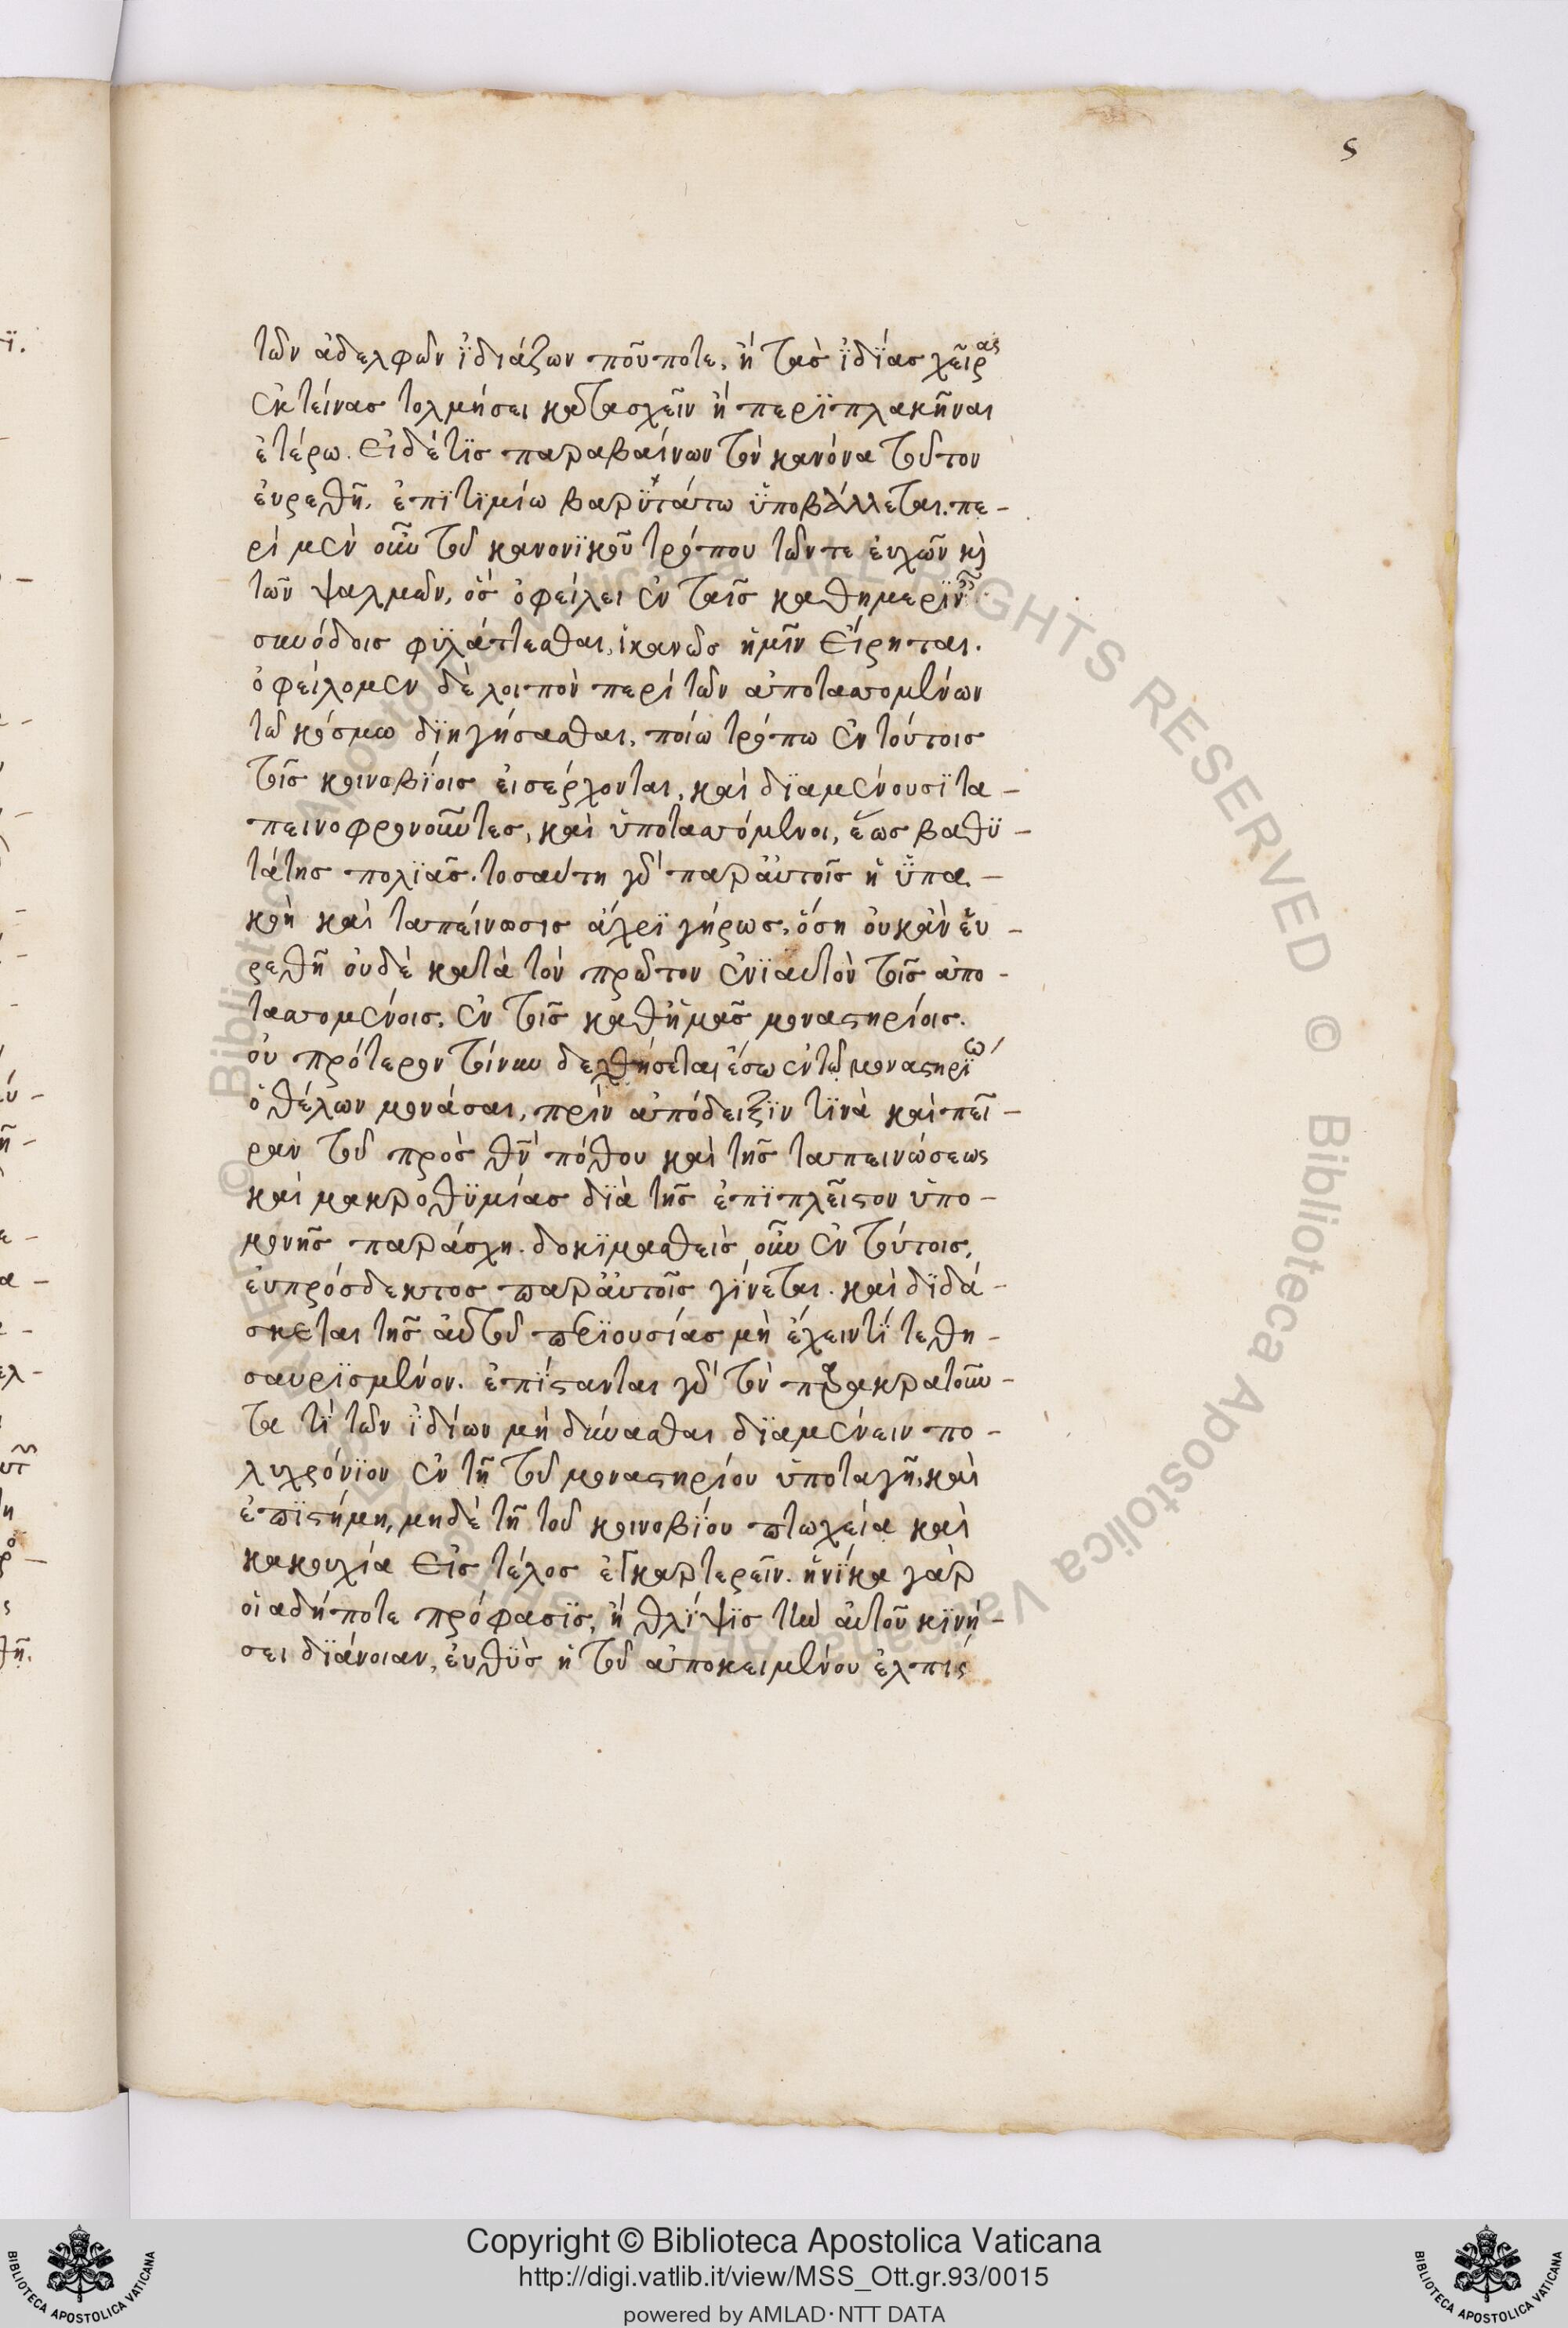 5
τῶν ἀδελφῶν ἰδιάζων ποῦποτε, ἢ τὰς ἰδίας χεῖρας
ἐκτείνας τολμήσει κατασχεῖν ἢ περιπλακῆναι
ἑτέρω. εἰ δέ τις παραβαίνων τὸν κανόνα τοῦτον
εὑρεθῆ, ἐπιτιμίω βαρυτάτω ὑποβάλλεται. πε-
ρὶ μὲν οὖν τοῦ κανονικοῦ τρόπου τῶν τε εὐχῶν κὶ
τῶν ψαλμῶν, ὃς ὀφείλει ἐν ταῖς καθημεριναῖς
συνόδοις φυλάττεσθαι, ἱκανῶς ἡμῖν εἴρηται.
ὀφείλομεν δὲ λοιπὸν περὶ τῶν ἀποτασσομένων
τῶ κόσμω διηγήσασθαι, ποίω τρόπω ἐν τούτοις
τοῖς κοινοβίοις εἰσέρχονται, καὶ διαμένουσι τα-
πεινοφρονοῦντες, καὶ ὑποτασσόμενοι, ἕως βαθυ-
τάτης πολιᾶς. τοσαύτη γὰρ παρ' αὐτοῖς ἡ ὑπα-
κοὴ καὶ ταπείνωσις ἄχρι γήρως, ὅση οὐκ ἂν εὑ-
ρεθῆ οὐδὲ κατὰ τὸν πρῶτον ἐνιαυτὸν τοῖς ἀπο-
τασσομένοις, ἐν τοῖς καθ' ἡμᾶς μοναστηρίοις.
οὐ πρότερον τοίνυν δεχθήσεται ἔσω ἐν τῶ μοναστηρίω
ὁ θέλων μονάσαι, πρὶν ἀπόδειξιν τινὰ καὶ πεῖ-
ραν τοῦ πρὸς θν̄ πόθου καὶ τῆς ταπεινώσεως
καὶ μακροθυμίας διὰ τῆς ἐπιπλεῖστον ὑπο-
μονῆς παράσχη. δοκιμασθεὶς οὖν ἐν τούτοις,
εὐπρόσδεκτος παρ' αὐτοῖς γίνεται. καὶ διδά-
σκεται τῆς αὐτοῦ περιουσίας μὴ ἔχειν τί τεθη-
σαυρισμένον. ἐπίστανται γὰρ τὸν παρακρατοῦν-
τα τὶ τῶν ἰδίων μὴ δύνασθαι διαμένειν πο-
λυχρόνιον ἐν τῆ τοῦ μοναστηρίου ὑποταγῆ, καὶ
ἐπιστήμη, μηδὲ τῆ τοῦ κοινοβίου πτωχεία καὶ
κακουχία εἰς τέλος ἐγκαρτερεῖν. ἡνίκα γὰρ
οἱαδήποτε πρόφασις, ἢ θλίψις τὴν αὐτοῦ κινή-
σει διάνοιαν, εὐθὺς ἡ τοῦ ἀποκειμένου ἐλπὶς
Copyright © Biblioteca Apostolica Vaticana
http://digi.vatlib.it/view/MSS_Ott.gr.93/0015
powered by AMLAD·NTT DATA